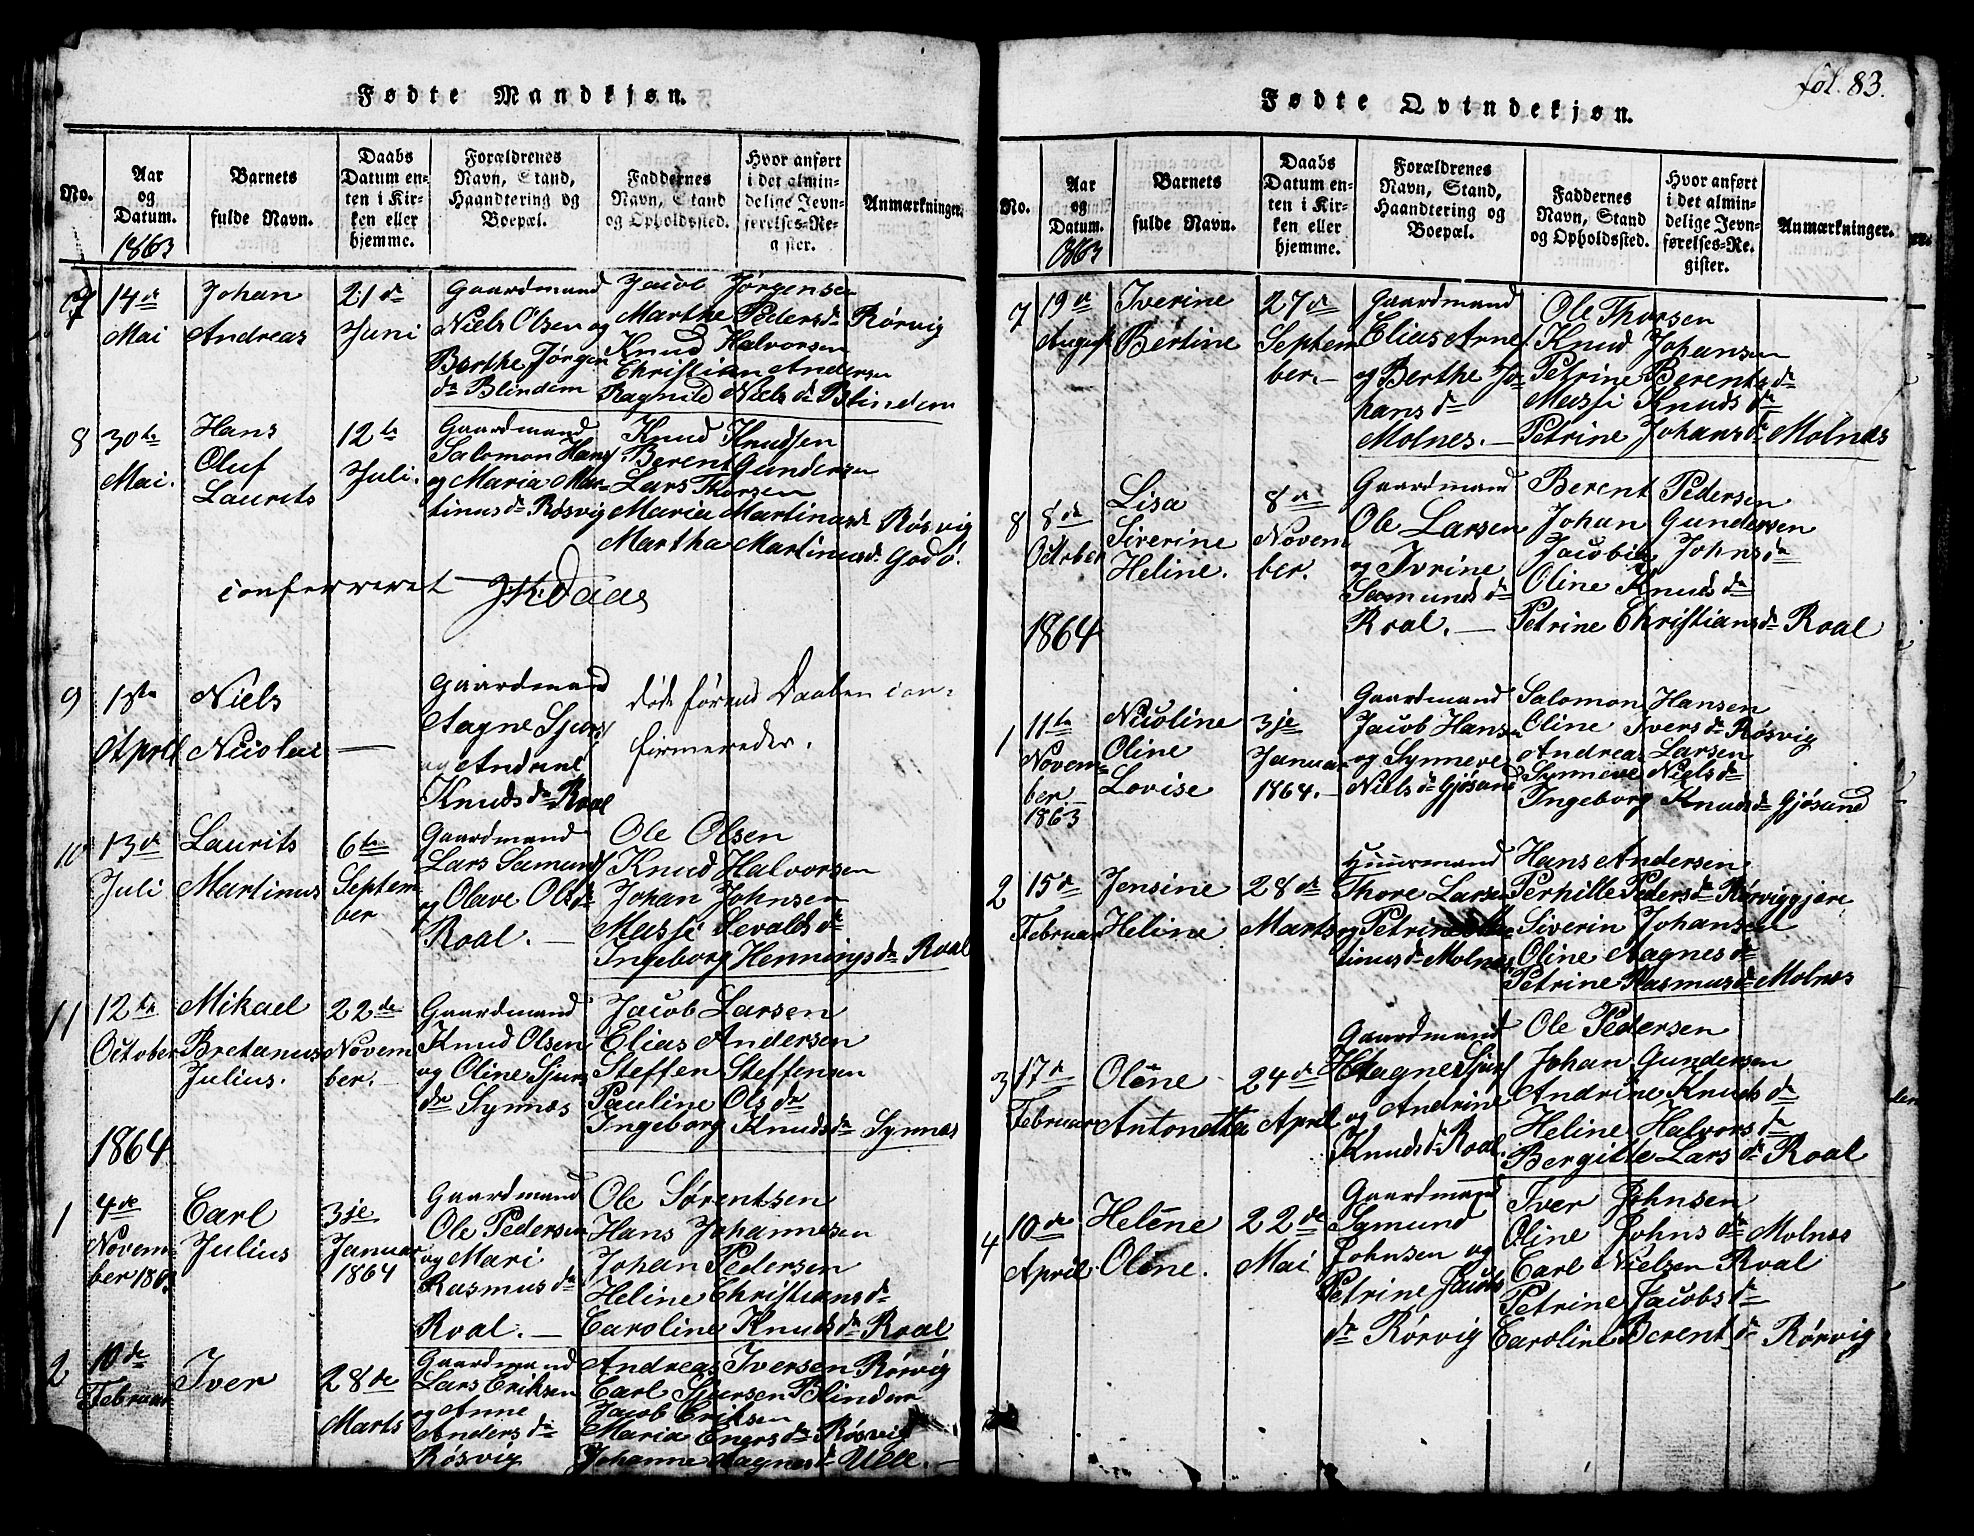 Fødte Mandkjøn.
No.
Aar
og
Datum.
1863
Barnets
fulde Navn.
Daabs
Datum en-
ten i Kir-
ken eller
hjemme.
Forældrenes
Navn, Stand,
Haandtering og
Boepæl.
Faddernes
Navn, Stand
og Opholdssted.
Hvor anført
i det almin-
delige Jevn-
førelses-Re-
gister.
Anmærkninger.
7
14de
Mai
Johan
Andreas
21de
Juni
Gaardmand
Niels Olsen og
Berthe Jørgen
dr Blindem
Jacob Jørgensen
Marthe Pedersdr Rørvig
Knud Halvorsen
Christian Andersen
Ragnild Nielsdr Blindem
8
30te
Mai.
Hans
Oluf
Laurits
12te
Juli.
Gaardmand
Salomon Hans
og Maria Mar-
tinusdr Røsvig
Knud Knudsen
Berent Gundersen
Lars Thorsen
Maria Martinusdr Røsvig
Martha Martinusdr. Godø.
conferreret
Daae
9
1ste
April
Niels
Nicolai
—
Gaardmand
Aagne Sjurs
og Andrine
Knudsdr Roal
døde førend Daaben con-
firmeredes.
10
13de
Juli
Laurits
Martinus
6te
Septem
ber
Gaardmand
Lars Samunds
og Olave Olsdr
Roal. —
Ole Olsen
Knud Halvorsen
Johan Johnsen
Massi Sevaldsdr
Ingeborg Henningsdr Roal
11
12te
October
Mikael
Bretanus
Julius.
22de
Novem
ber. —
Gaardmand
Knud Olsen
og Oline Sjurs
dr Synnes
Jacob Larsen
Elias Andersen
Steffen Steffensen
Pauline Olsdr
Ingeborg Knudsdr Synnes
1864
1
4de
Novem-
ber 1863
Carl
Julius
3je
Januar
1864
Gaardmand
Ole Pedersen
og Mari
Rasmusdr
Roal. —
Ole Sørentsen
Hans Johannesen
Johan Pedersen
Heline Christiansdr
Caroline Knudsdr Roal
2
10de
Februar
Iver
28de
Marts
Gaardmand
Lars Eriksen
og Anne
Andersdr
Røsvig
Andreas Iversen Rørvig
Carl Sjursen Blindem
Jacob Eriksen
Maria Enersdr Røsvig
Johanne Aagnesdr Ulle. —
føl. 83.
Fødte Qvindekjøn.
No.
Aar
og
Datum.
1863
Barnets
fulde Navn.
Daabs
Datum en-
ten i Kir-
ken eller
hjemme.
Forældrenes
Navn, Stand,
Haandtering og
Boepæl.
Faddernes
Navn, Stand
og Opholdssted.
Hvor anført
i det almin-
delige Jevn-
førelses-Re-
gister.
Anmærkninger.
7
19de
August
Iverine
Bertine
27de
Septem
ber. —
Gaardmand
Elias Arnes
og Berthe Jo-
hansdr
Molnes. —
Ole Thorsen
Knud Johansen
Petrine Berentsdr
Massi Knudsdr
Petrine Johansdr Molnes
8
8de
October
Lisa
Siverine
Heline.
8de
Novem
ber.
Gaardmand
Ole Larsen
og Ivrine
Samundsdr
Roal. —
Berent Pedersen
Johan Gundersen
Jacobine Johnsdr
Oline Knudsdr
Petrine Christiansdr Roal
1864
1
11te
Novem-
ber
1863
Nicoline
Oline
Lovise
3je
Januar
1864. —
Gaardmand
Jacob Hansen
og Synneve
Nielsdr Gjøsund
Salomon Hansen
Oline Iversdr Røsvig
Andreas Larsen
Synneve Nielsdr
Ingeborg Knudsdr Gjøsund
2
15de
Februar
Jensine
Heline
28de
Marts
Huusmand
Thore Larsen
og Petrine Mar
tinusdr Molnes
Hans Andersen
Perhille Pedersdr Rørviggjere
Siverin Johansen
Oline Aagnesdr
Petrine Rasmusdr Molnes
3
17de
Februar
Oline
Antonetta
24de
April
Gaardmand
Aagne Sjurs
og Andrine
Knudsdr Roal.
Ole Pedersen
Johan Gundersen
Andrine Knudsdr
Heline Halvorsdr
Bergitte Larsdr Roal
4
10de
April
Heline
Oline.
22de
Mai
Gaardmand
Samund
Johnsen og
Petrine Jacobs
dr Rørvig
Iver Johnsen
Oline Johnsdr Molnes
Carl Nielsen Roal
Petrine Jacobsdr
Caroline Berentdr Rørvig